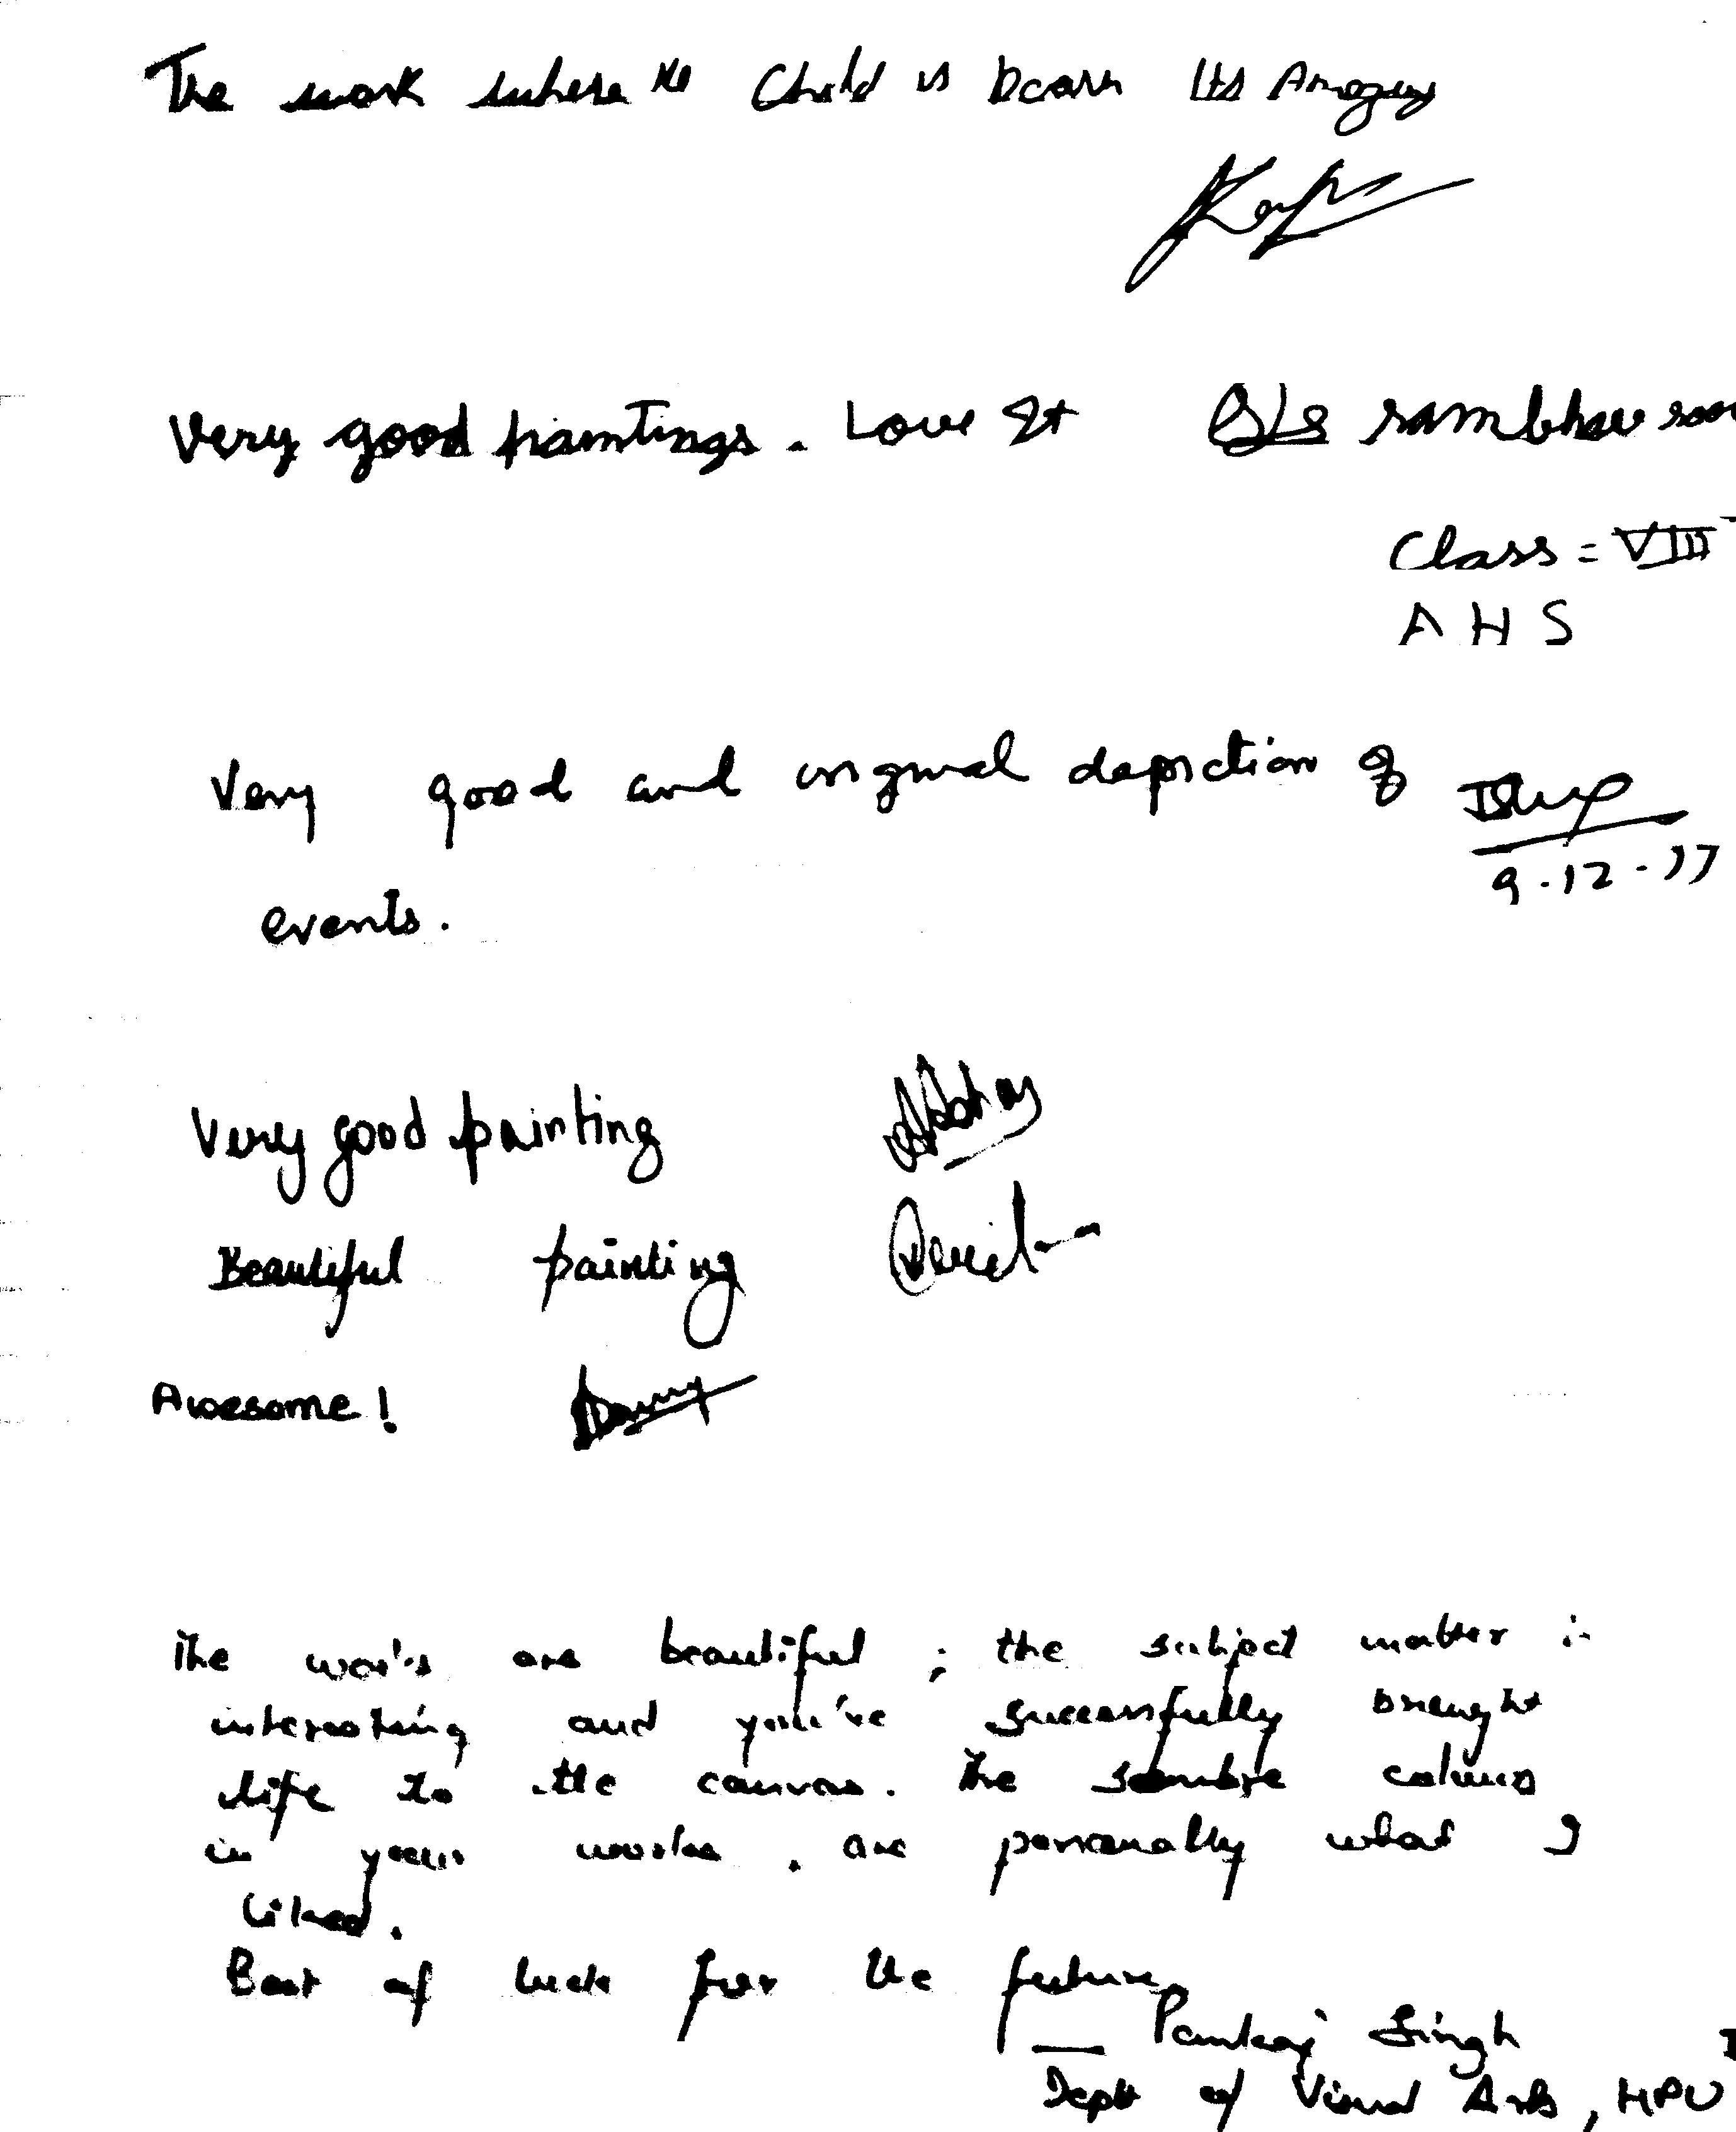 The work where the Child is Boarn Its Amazing
Very good paintings. Love It sambhav
Class = VIII
A H S
Very good and original depiction of
9.12.17
events.
Very good painting Abhay
Beautiful painting
Awesome!
The works are beautiful; the subject matter is
interesting and you've successfully brought
life to the canvas. The sombre colours
in your works, are personally what I
liked.
Best of luck for the future
Pankaj Singh
Dept of Visual Arts, HPU